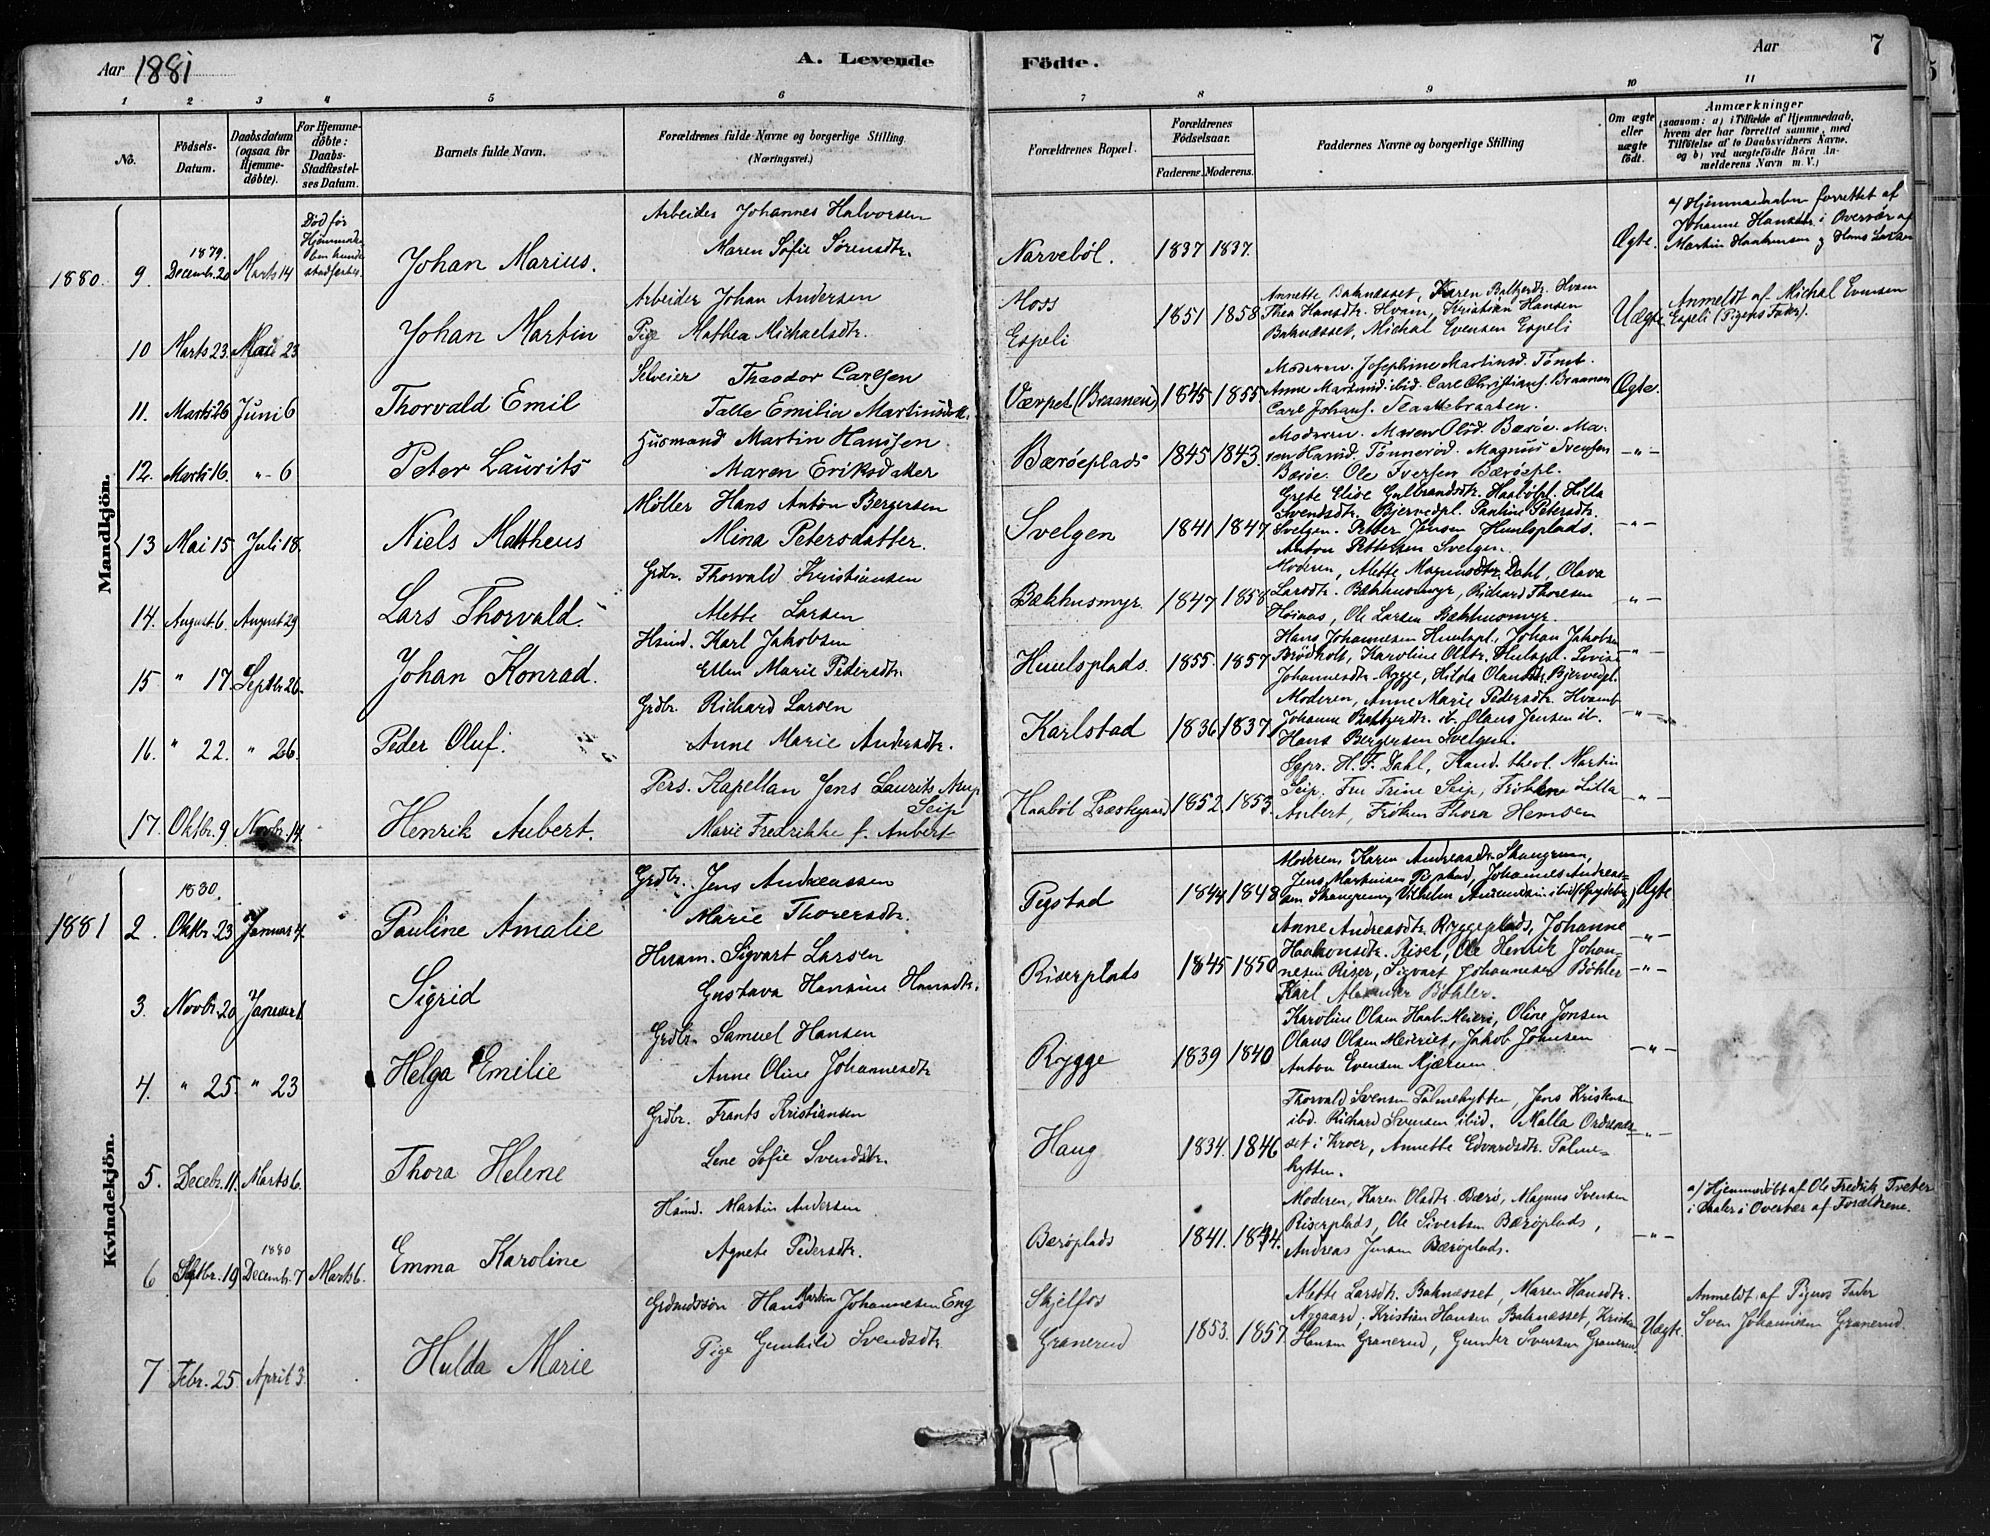 Aar 1881
A. Levende
Födte.
Aar
7
1 2 3 4 5 6 7 8 9 10 11
No.
Födsels-Datum.
Daabsdatum (ogsaa for Hjemmedöbte).
For Hjemmedöbte: Daabs-Stadfæstelses Datum.
Barnets fulde Navn.
Forældrenes fulde Navne og borgerlige Stilling (Næringsvei.)
Forældrenes Bopæl.
Forældrenes Födselsaar.
Faderens. Moderens.
Faddernes Navne og borgerlige Stilling
Om ægte eller uægte födt.
Anmærkninger
(saasom: a) i Tilfælde af Hjemmedaab, hvem der har forrettet samme, med Tilföielse af to Daabsvidners Navne. og b) ved uægtefödte Börn Anmelderens Navn m. V.)
Mandkjön.
1880. 9. 1879. Decemb. 20 Marts 14
Død før Hjemmedaaben kunde stadfæstes.
Johan Marius.
Arbeider Johannes Halvorsen
Maren Sofie Sørensdtr.
Narvebøl. 1837 1837. Ægte.
a/ Hjemmedaaben forrettet af
Johanne Hansdtr. i Overvær af
Martin Haakensen og Hans Larsen
10 Marts 23. Mai 23
Johan Martin
Arbeider Johan Andersen
Pige Mathea Michaelsdtr.
Moss
Espeli
1851 1858
Annette Baknæsset, Karen Baltzerdtr. Hvam
Thea Hansdtr. Hvam, Kristian Hansen
Baknæsset, Michal Evensen Espeli
Uægte.
Anmeldt af Michal Evensen
Espeli (Pigens Fader).
11. Marts 26 Juni 6
Thorvald Emil
Selveier Theodor Carlsen
Talle Emilia Martinsdtr.
Værpet (Braanen) 1845 1855
Moderen. Josephine Martinsd. Tomt.
Anne Martinsd. ibid. Carl Christians. Braanen
Carl Johans. Slaattebraaten.
Ægte.
12. Marts 16. " 6
Peter Laurits
Husmand Martin Hansen
Maren Eriksdatter
Bærøeplads 1845 1843.
Moderen. Maren Olsd. Bærøe. Ma-
ren Hansd. Tønnerød. Magnus Svensen
Bærøe. Ole Iversen Bærøepl.
-"-
13 Mai 15 Juli 18.
Niels Mattheus
Møller Hans Anton Bergersen
Mina Petersdatter.
Svelgen 1841 1847
Grete Elise Gulbrandsdtr. Haabølpl. Hilda
Svendsdtr. Bjervedpl. Pauline Petersdtr.
Svelgen. Petter Jensen Huulsplads.
Anton Pettersen Svelgen.
-"-
14. August 6. August 29
Lars Thorvald.
Grdbr. Thorvald Kristiansen
Alette Larsen
Bækhusmyr. 1847 1858
Moderen, Alette Magnusdtr. Dahl, Olava
Larsdtr. Bækhusmyr, Richard Thoresen
Høiaas, Ole Larsen Bækhusmyr.
-"-
15 " 17. Septbr. 26.
Johan Konrad.
Hsmd. Karl Jakobsen
Ellen Marie Pedersdtr.
Huulsplads. 1855. 1857
Hans Johannesen Huulspl., Johan Jakobsen
Brødholt, Karoline Olsdtr. Hulspl. Lovise
Johannesdtr. Rygge, Hilda Olausdtr. Bjervedpl.
-"-
16. " 22. " 26.
Peder Oluf.
Grdbr. Richard Larsen
Anne Marie Andersdtr.
Karlstad 1836 1837
Moderen, Anne Marie Pedersdtr. Hvamb
Johanne Baltzerdtr. ib. Olaus Jensen ib.
Hans Bergersen Svelgen.
-"-
17. Oktbr. 9. Novbr. 14.
Henrik Aubert.
Pers. Kapellan Jens Laurits Arup
Seip
Marie Fredrikke f. Aubert
Haabøl Præstegaard 1852. 1853.
Sgpr. H. F. Dahl, Kand. theol. Martin
Seip. Fru Trine Seip, Frøken Lilla
Aubert, Frøken Thora Hemsen
-"-
Kvindekjön.
1881 2. 1880. Oktbr. 23 Januar 4.
Pauline Amalie
Grdbr. Jens Andreassen
Marie Thorersdtr.
Pigstad 1844 1848
Moderen, Karen Andreasdtr. Skaugrum,
Jens Martinsen Pigstad, Johannes Andreas-
sen Skaugrum, Vilhelm Andreassen ibid (Spydeberg)
Ægte.
3. Novbr. 20 Januar 1
Sigrid
Husm. Sigvart Larsen
Gustava Hansine Hansdtr.
Riserplads 1845 1850
Anne Andreasdtr. Ryggeplads, Johanne
Haakonsdtr. Riser, Ole Henrik Johan-
nesen Riser, Sigvart Johannesen Bøhler
Karl Alexander Bøhler.
-"-
-"-
4. " 25. " 23
Helga Emilie
Grdbr. Samuel Hansen
Anne Oline Johannesdtr
Rygge 1839 1840
Karoline Olsen Haab. Meieri, Oline Jonsen
Olaus Olsen Meieriet, Jakob Johnsen
Anton Evensen Kjærum.
-"-
5. Decbr. 11. Marts 6.
Thora Helene
Grdbr. Frants Kristiansen
Lene Sofie Svendsdtr.
Haug 1834. 1846
Thorvald Svensen Palmehytten, Jens Kristiansen
ibd. Richard Svensen ibid. Malla
set i Kroer, Annette Edvardsdtr. Palme-
hytten.
-"-
6 Septbr. 19 1880 Decemb. 7 Marts 6.
Emma Karoline
Hsmd. Martin Andersen
Agnete Pedersdtr.
Bærøplads 1841. 1844.
Moderen, Karen Olsdtr. Bærø, Magnus Svensen
Riserplads, Ole Sivertsen Bærøplads,
Andreas Jensen Bærøplads.
-"-
a/ Hjemmedøbt af Ole Fredrik Tveter
i Vaaler i Overvær af Forældrene.
7 Febr. 25. April 3.
Hulda Marie
Grdmdssøn Hans Martin Johannesen Eng
Pige Gunhild Svendsdtr
Skjelfos
Granerud
1853. 1857.
Alette Larsdtr. Baknæsset, Maren Hansdtr.
Nygaard, Kristian Hansen Baknæsset, Kristian
Hansen Granerud, Gunder Svensen Granerud
Uægte.
Anmeldt af Pigens Fader
Sven Johannesen Granerud.